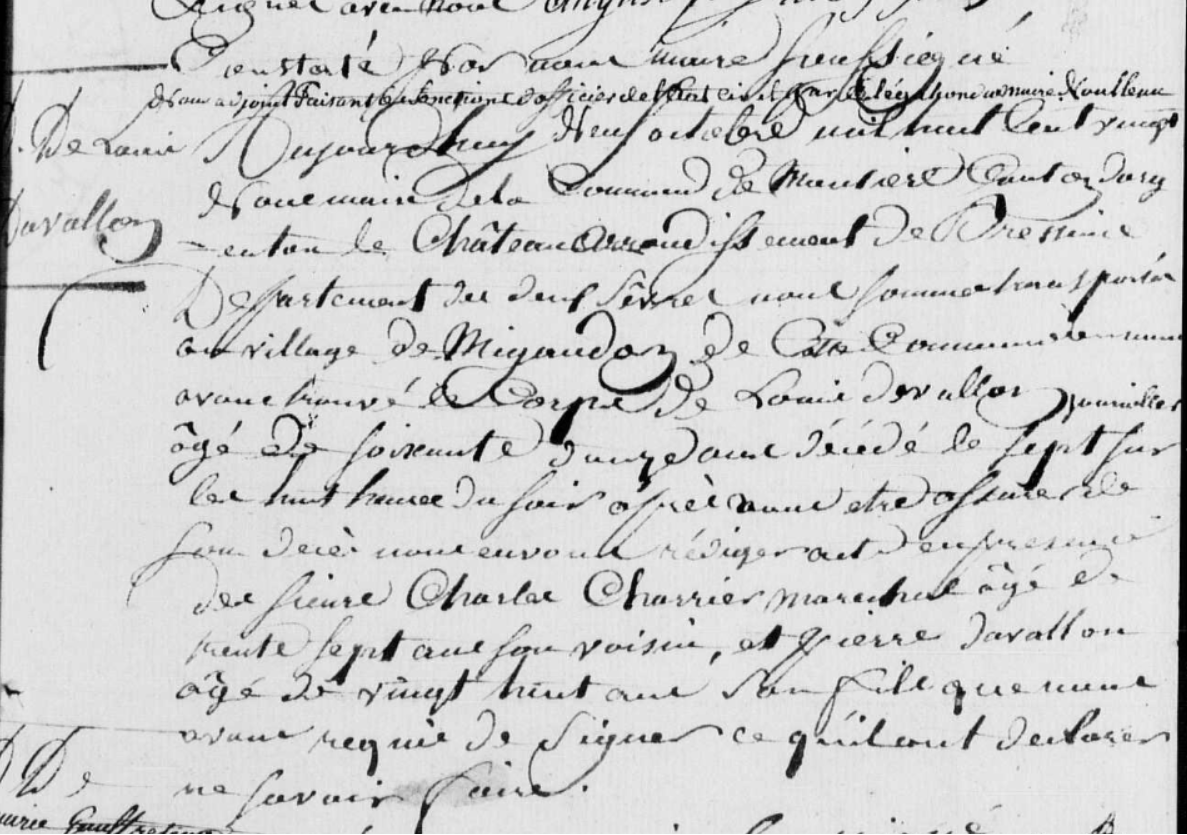 Signer avec nous
Constaté par nous maire soussigné
Nous adjoint faisant les fonctions d'officier de l'état civil par délégation du maire
D. De Louis
Davallon
Aujourdhuy neuf octobre mil huit cent vingt
Nous maire de la Commune de Moutiers Canton darg
-enton le Château Arrondissement de Bressuire
Departement des deux Sèvres nous sommes transportés
au village de Migaudon de Cette Commune ou nous
avons trouvé le Corps de Louis Davallon journallier
âgé de soixante douze ans décédé le sept sur
les huit heures du soir après nous etre assurer de
son decès nous en vous rédiger acte en presence
des sieurs Charles Charrier marechal âgé de
trente sept ans son voisin, et pierre Davallon
âgé de vingt huit ans son fils que nous
avons requis de signer ce qu'il ont declarer
ne savoir faire.
D De